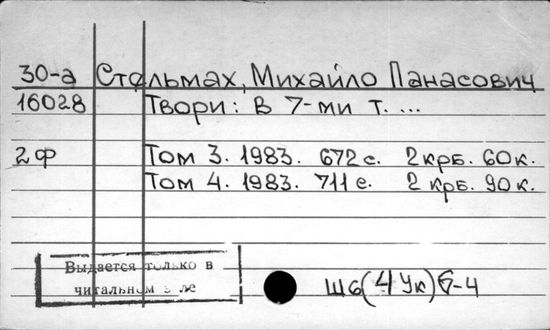 30-а Стельмах, Михайло Панасович
16028 Твори: В 7-ми т. ...
2ф Том 3. 1983. 672 с. 2 крб. 60 к.
Том 4. 1983. 711 с. 2 крб. 90 к.
Выдается только в
читальном з ле
Ш6(4Ук)6-4